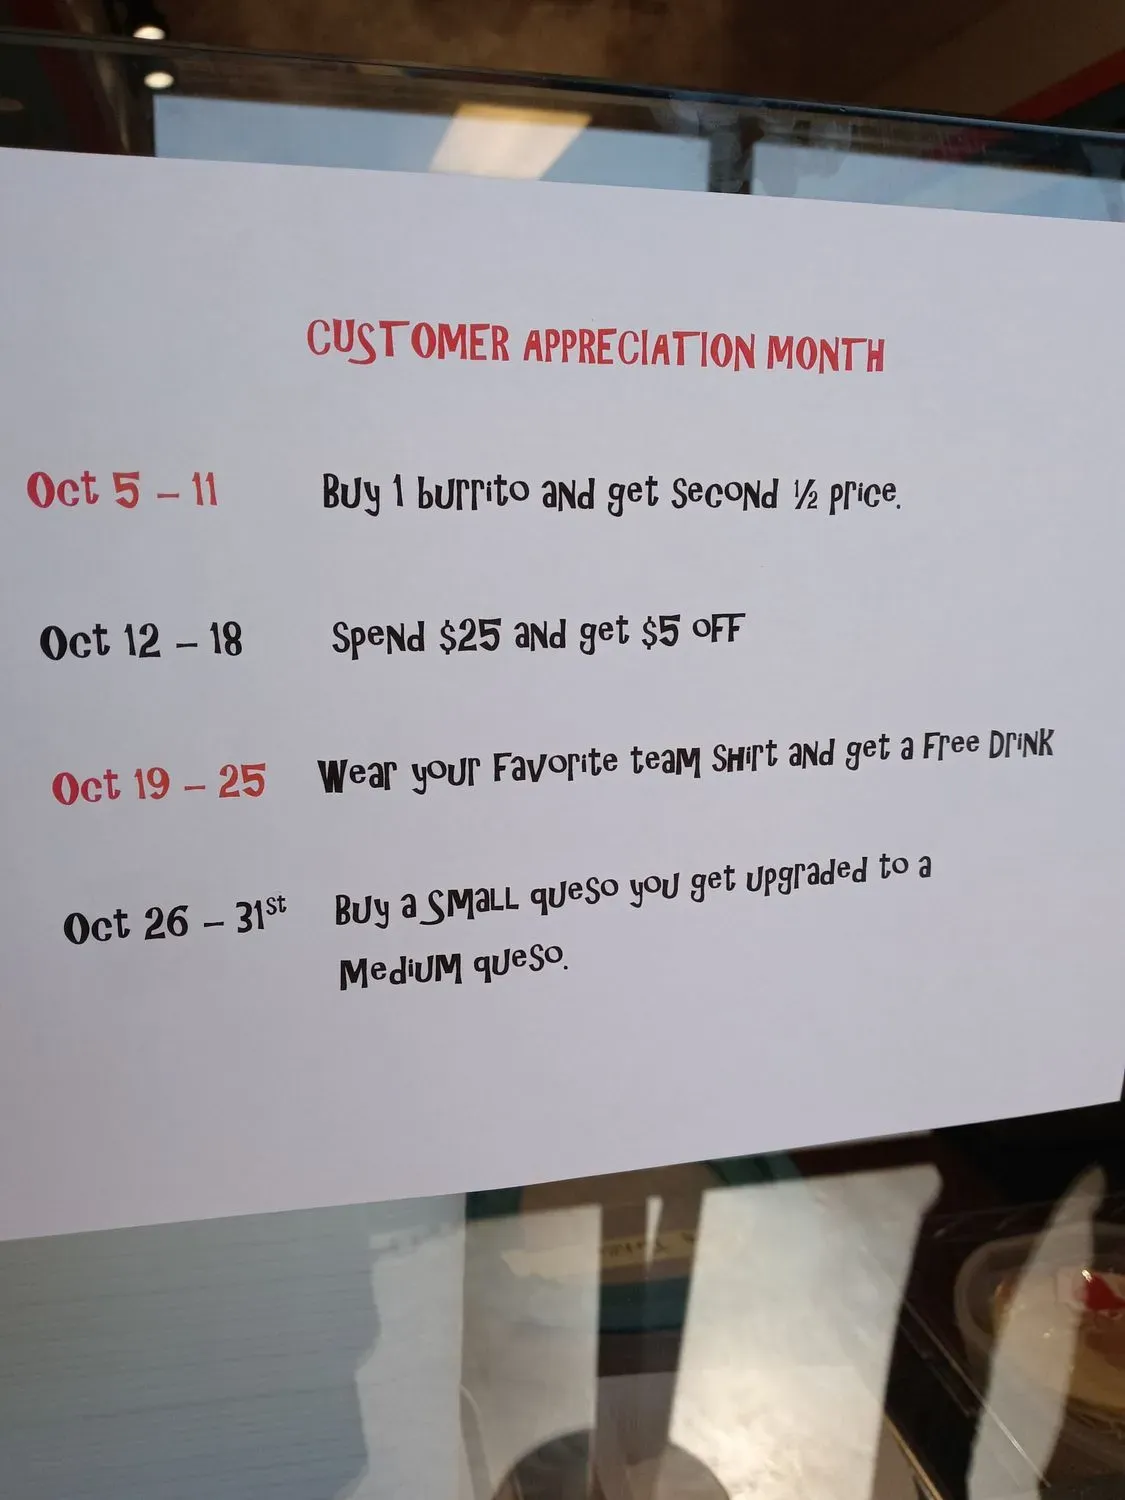 CUSTOMER APPRECIATION MONTH
Oct 5 – 11 Buy 1 burrito and get second ½ price.
Oct 12 – 18 Spend $25 and get $5 off
Oct 19 – 25 Wear your favorite team shirt and get a free drink
Oct 26 – 31st Buy a small queso you get upgraded to a
medium queso.